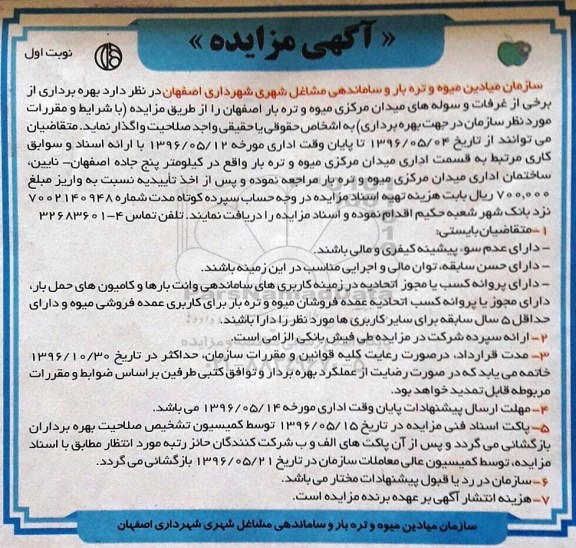 « آگهی مزایده »
نوبت اول
سازمان میادین میوه و تره بار و ساماندهی مشاغل شهری شهرداری اصفهان در نظر دارد بهره برداری از
برخی از غرفات و سوله های میدان مرکزی میوه و تره بار اصفهان را از طریق مزایده (با شرایط و مقررات
مورد نظر سازمان در جهت بهره برداری) به اشخاص حقوقی یا حقیقی واجد صلاحیت واگذار نماید. متقاضیان
می توانند از تاریخ ۱۳۹۶/۰۵/۰۴ تا پایان وقت اداری مورخه ۱۳۹۶/۰۵/۱۲ با ارائه اسناد و سوابق
کاری مرتبط به قسمت اداری میدان مرکزی میوه و تره بار واقع در کیلومتر پنج جاده اصفهان- نایین،
ساختمان اداری میدان مرکزی میوه و تره بار مراجعه نموده و پس از اخذ تأییدیه نسبت به واریز مبلغ
۷۰۰,۰۰۰ ریال بابت هزینه تهیه اسناد مزایده در وجه حساب سپرده کوتاه مدت شماره ۷۰۰۲۱۴۰۹۴۸
نزد بانک شهر شعبه حکیم اقدام نموده و اسناد مزایده را دریافت نمایند. تلفن تماس ۴-۳۲۶۸۳۶۰۱
۱-متقاضیان بایستی:
- دارای عدم سوء پیشینه کیفری و مالی باشند.
- دارای حسن سابقه، توان مالی و اجرایی مناسب در این زمینه باشند.
- دارای پروانه کسب یا مجوز اتحادیه در زمینه کاربری های ساماندهی وانت بارها و کامیون های حمل بار،
دارای مجوز یا پروانه کسب اتحادیه عمده فروشان میوه و تره بار برای کاربری عمده فروشی میوه و دارای
حداقل ۵ سال سابقه برای سایر کاربری ها مورد نظر را دارا باشند.
۲- ارائه سپرده شرکت در مزایده طی فیش بانکی الزامی است.
۳- مدت قرارداد، درصورت رعایت کلیه قوانین و مقررات سازمان، حداکثر در تاریخ ۱۳۹۶/۱۰/۳۰
خاتمه می یابد که در صورت رضایت از عملکرد بهره بردار و توافق کتبی طرفین براساس ضوابط و مقررات
مربوطه قابل تمدید خواهد بود.
۴- مهلت ارسال پیشنهادات پایان وقت اداری مورخه ۱۳۹۶/۰۵/۱۴ می باشد.
۵- پاکت اسناد فنی مزایده در تاریخ ۱۳۹۶/۰۵/۱۵ توسط کمیسیون تشخیص صلاحیت بهره برداران
بازگشانی می گردد و پس از آن پاکت های الف و ب شرکت کنندگان حائز رتبه مورد انتظار مطابق با اسناد
مزایده، توسط کمیسیون عالی معاملات سازمان در تاریخ ۱۳۹۶/۰۵/۲۱ بازگشانی می گردد.
۶-سازمان در رد یا قبول پیشنهادات مختار می باشد.
۷-هزینه انتشار آگهی بر عهده برنده مزایده است.
سازمان میادین میوه و تره بار و ساماندهی مشاغل شهری شهرداری اصفهان